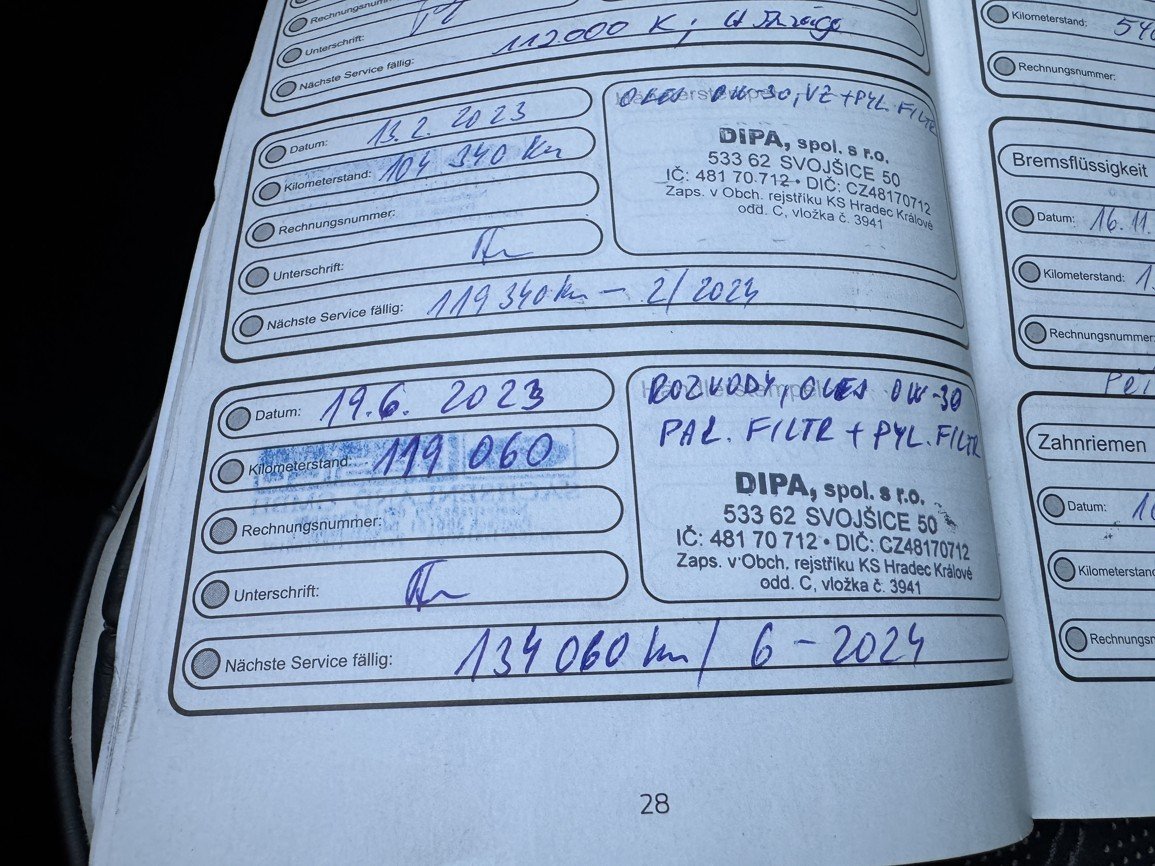 Rechnungsnum
Unterschrift:
Nächste Service fällig: 112000 K;
Datum: 13. 2. 2023
Kilometerstand: 104 340 Km
Rechnungsnummer:
Unterschrift:
Nächste Service fällig: 119 340 km – 2/2024
OLEJ 0W-30, VZ + PYL. FILTR
DIPA, spol. s r.o.
533 62 SVOJŠICE 50
IČ: 481 70 712 • DIČ: CZ48170712
Zaps. v Obch. rejstříku KS Hradec Králové
odd. C, vložka č. 3941
Datum: 19.6. 2023
Kilometerstand: 119 060
Rechnungsnummer:
Unterschrift:
Nächste Service fällig: 134 060 km / 6 – 2024
ROZVODY, OLEJ 0W-30
PAL. FILTR + PYL. FILTR
DIPA, spol. s r.o.
533 62 SVOJŠICE 50
IČ: 481 70 712 • DIČ: CZ48170712
Zaps. v Obch. rejstříku KS Hradec Králové
odd. C, vložka č. 3941
28
Kilometerstand: 540
Rechnungsnummer:
Bremsflüssigkeit
Datum: 16. 11.
Kilometerstand: 1
Rechnungsnummer:
Zahnriemen
Datum:
Kilometerstand
Rechnungsn